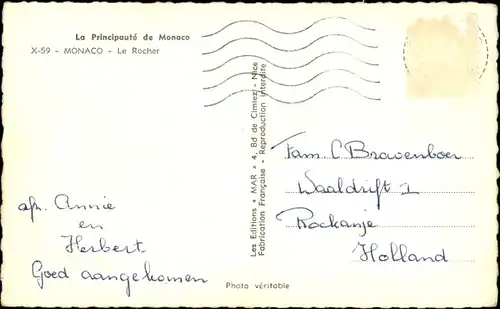 La Principauté de Monaco
X-59 - MONACO - Le Rocher
afz. Annie
en
Herbert
Goed aangekomen
Les Editions « MAR » 4, Bd de Cimiez - Nice
Fabrication Française - Reproduction Interdite
Fam. C Bravenboer
Waaldrift 1
Rockanje
Holland
Photo véritable